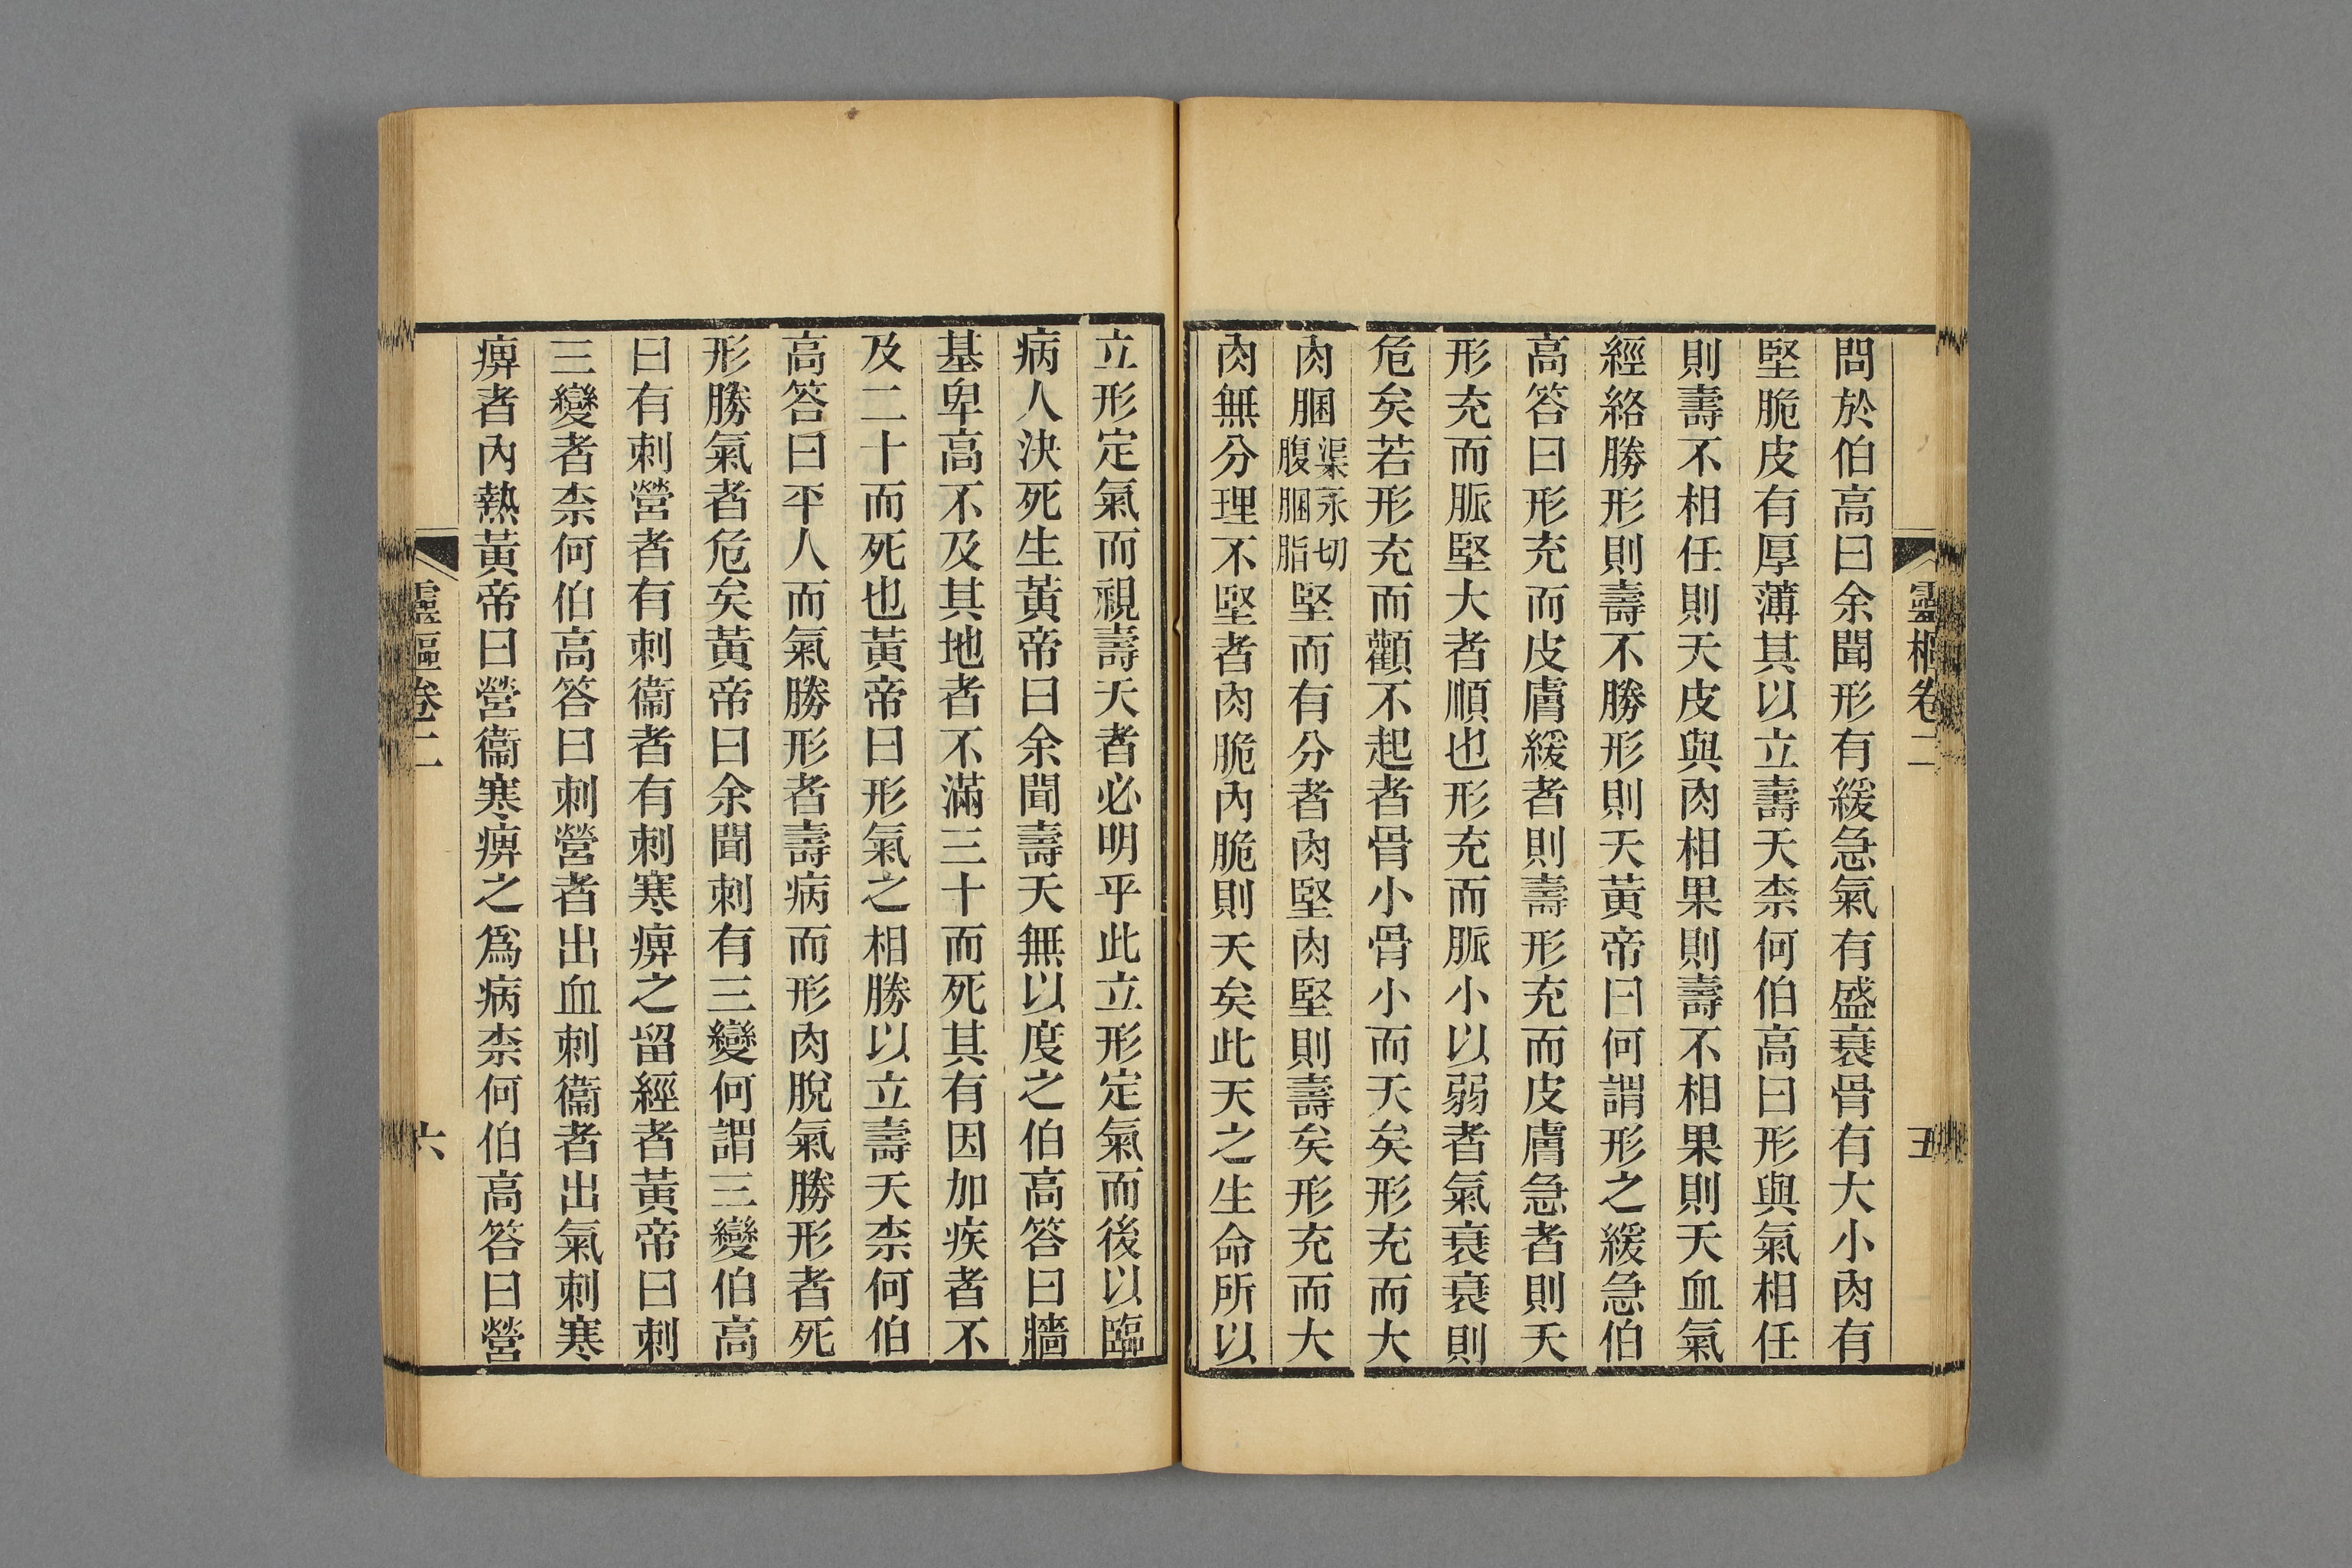 靈樞卷二
五
問於伯高曰余聞形有緩急氣有盛衰骨有大小肉有
堅脆皮有厚薄其以立壽夭柰何伯高曰形與氣相任
則壽不相任則夭皮與肉相果則壽不相果則夭血氣
經絡勝形則壽不勝形則夭黃帝曰何謂形之緩急伯
高答曰形充而皮膚緩者則壽形充而皮膚急者則夭
形充而脈堅大者順也形充而脈小以弱者氣衰衰則
危矣若形充而顴不起者骨小骨小而夭矣形充而大
肉䐃渠永切腹䐃脂堅而有分者肉堅肉堅則壽矣形充而大
肉無分理不堅者肉脆內脆則夭矣此天之生命所以
立形定氣而視壽夭者必明乎此立形定氣而後以臨
病人決死生黃帝曰余聞壽夭無以度之伯高答曰牆
基卑高不及其地者不滿三十而死其有因加疾者不
及二十而死也黃帝曰形氣之相勝以立壽夭柰何伯
高答曰平人而氣勝形者壽病而形肉脫氣勝形者死
形勝氣者危矣黃帝曰余聞刺有三變何謂三變伯高
曰有刺營者有刺衞者有刺寒痹之留經者黃帝曰刺
三變者柰何伯高答曰刺營者出血刺衞者出氣刺寒
痹者內熱黃帝曰營衞寒痹之爲病柰何伯高答曰營
靈樞卷二
六